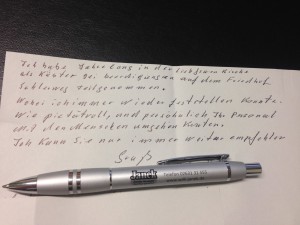 Ich habe Jahrelang in der
als Küster bei beerdigungen auf dem Friedhof
Schleswig Teilgenommen.
Wobei ich immer wieder feststellen konnte.
Wie pietätvoll, und persönlich Ihr Personal
Mit den Menschen umgehen konten.
Ich kann Sie nur immer weiter empfehlen
Gruß